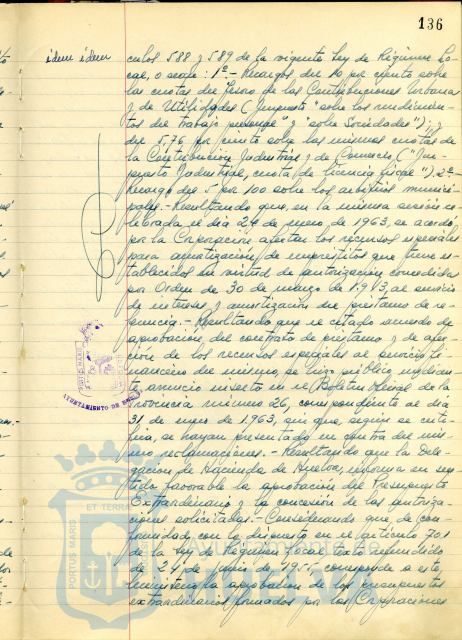 136
idem idem
culos 588 y 589 de la vigente Ley de Régimen Lo-
cal, o sean: 1º.- Recargos del 10 por ciento sobre
las cuotas del Tesoro de las Contribuciones Urbana
y de Utilidades (Impuesto "sobre los rendimien-
tos del trabajo personal" y "sobre Sociedades"); y
del 5,76 por ciento sobre las mismas cuotas de
la Contribución Industrial y de Comercio ("Im-
puesto Industrial, cuota de licencia fiscal"), 2º.-
Recargo del 5 por 100 sobre los arbitrios munici-
pales.- Resultando que, en la misma sesión ce-
lebrada el día 24 de enero de 1963, se acordó
por la Corporación, afectar los recursos especiales
para amortización de empréstitos que tiene es-
tablecidos en virtud de autorización concedida
por Orden de 30 de marzo de 1.913, al servicio
de intereses y amortización del préstamo de re-
ferencia.- Resultando que el citado acuerdo de
aprobación del contrato de préstamo y de afec-
ción de los recursos especiales al servicio fi-
nanciero del mismo, se hizo público median-
te anuncio inserto en el Boletín Oficial de la
Provincia número 26, correspondiente al día
31 de enero de 1963, sin que, según se certi-
fica, se hayan presentado en contra del mis-
mo, reclamaciones.- Resultando que la Dele-
gación de Hacienda de Huelva, informa en sen-
tido favorable la aprobación del Presupuesto
Extraordinario y la concesión de las autoriza-
ciones solicitadas.- Considerando que, de con-
formidad con lo dispuesto en el artículo 701
de la Ley de Régimen Local, texto refundido
de 24 de junio de 1955, corresponde a este
Ministerio la aprobación de los presupuestos
extraordinarios formados por las Corporaciones
PORTUS MARIS
AYUNTAMIENTO DE
PORTUS MARIS ET TERRAE